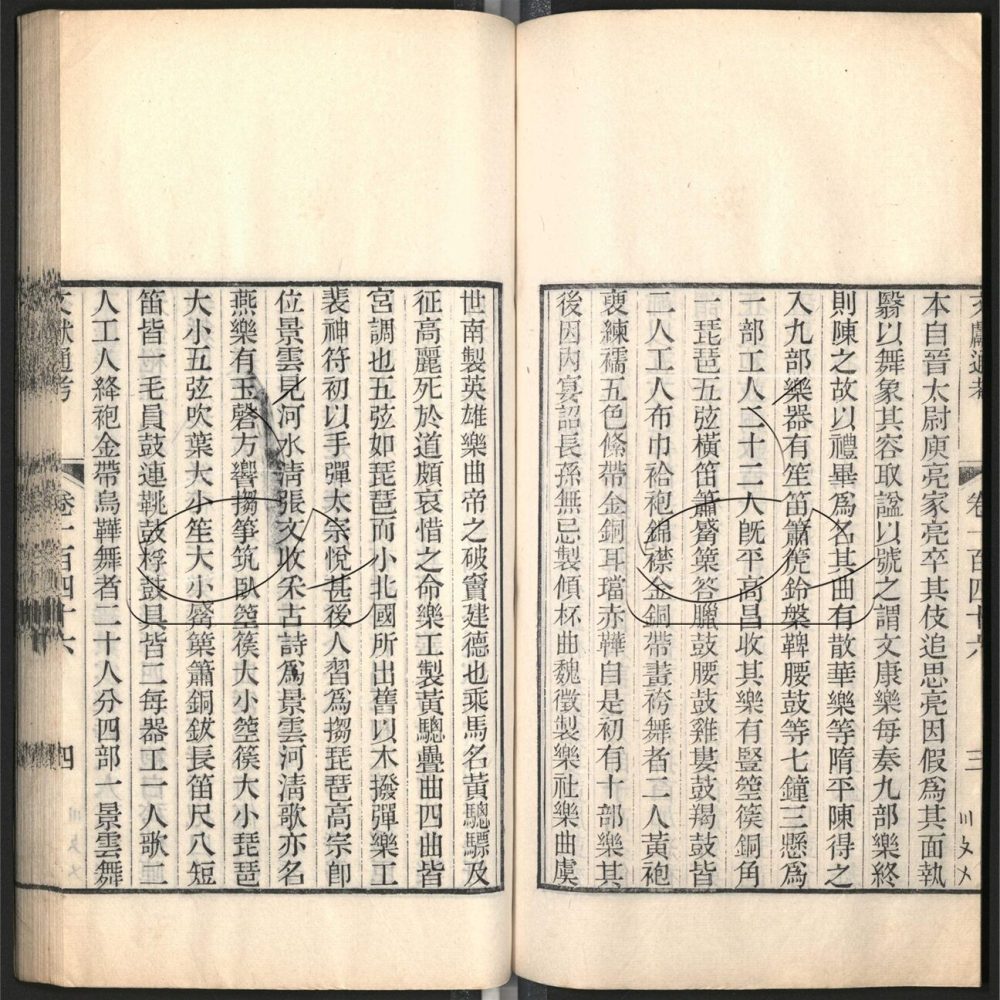 文獻通考 卷一百四十六 三
本自晉太尉庾亮家亮卒其伎追思亮因假爲其面執
翳以舞象其容取諡以號之謂文康樂每奏九部樂終
則陳之故以禮畢爲名其曲有散華樂等隋平陳得之
入九部樂器有笙笛簫篪鈴槃鞞腰鼓等七鐘三懸爲
一部工人二十二人旣平高昌收其樂有豎箜篌銅角
一琵琶五弦橫笛簫觱篥答臘鼓腰鼓雞婁鼓羯鼓皆
二人工人布巾袷袍錦襟金銅帶畫袴舞者二人黃袍
袖練襦五色絛帶金銅耳璫赤鞾自是初有十部樂其
後因內宴詔長孫無忌製傾杯曲魏徵製樂社樂曲虞
世南製英雄樂曲帝之破竇建德也乘馬名黃驄驃及
征高麗死於道頗哀惜之命樂工製黃驄疊曲四曲皆
宮調也五弦如琵琶而小北國所出舊以木撥彈樂工
裴神符初以手彈太宗悅甚後人習爲搊琵琶高宗卽
位景雲見河水淸張文收采古詩爲景雲河淸歌亦名
燕樂有玉磬方響搊箏筑臥箜篌大小箜篌大小琵琶
大小五弦吹葉大小笙大小觱篥簫銅鈸長笛尺八短
笛皆一毛員鼓連鞉鼓桴鼓具皆二每器工一人歌二
人工人絳袍金帶烏鞾舞者二十人分四部一景雲舞
文獻通考 卷一百四十六 四